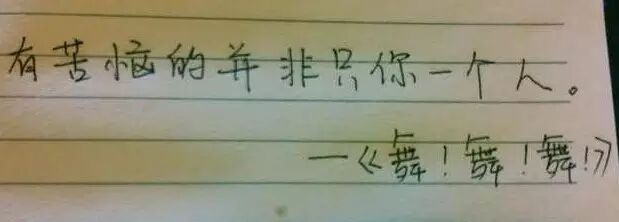 有苦恼的并非只你一个人。
—《舞！舞！舞！》